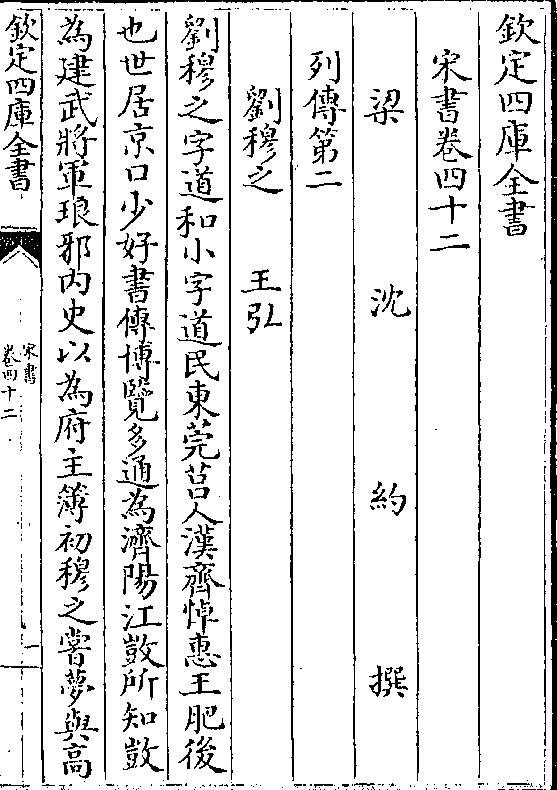 欽定四庫全書
宋書卷四十二
梁沈約撰
列傳第二
劉穆之 王弘
劉穆之字道和小字道民東莞莒人漢齊悼惠王肥後
也世居京口少好書傳博覽多通為濟陽江敳所知敳
為建武將軍琅邪内史以為府主簿初穆之嘗夢與高
欽定四庫全書
宋書
卷四十二
一